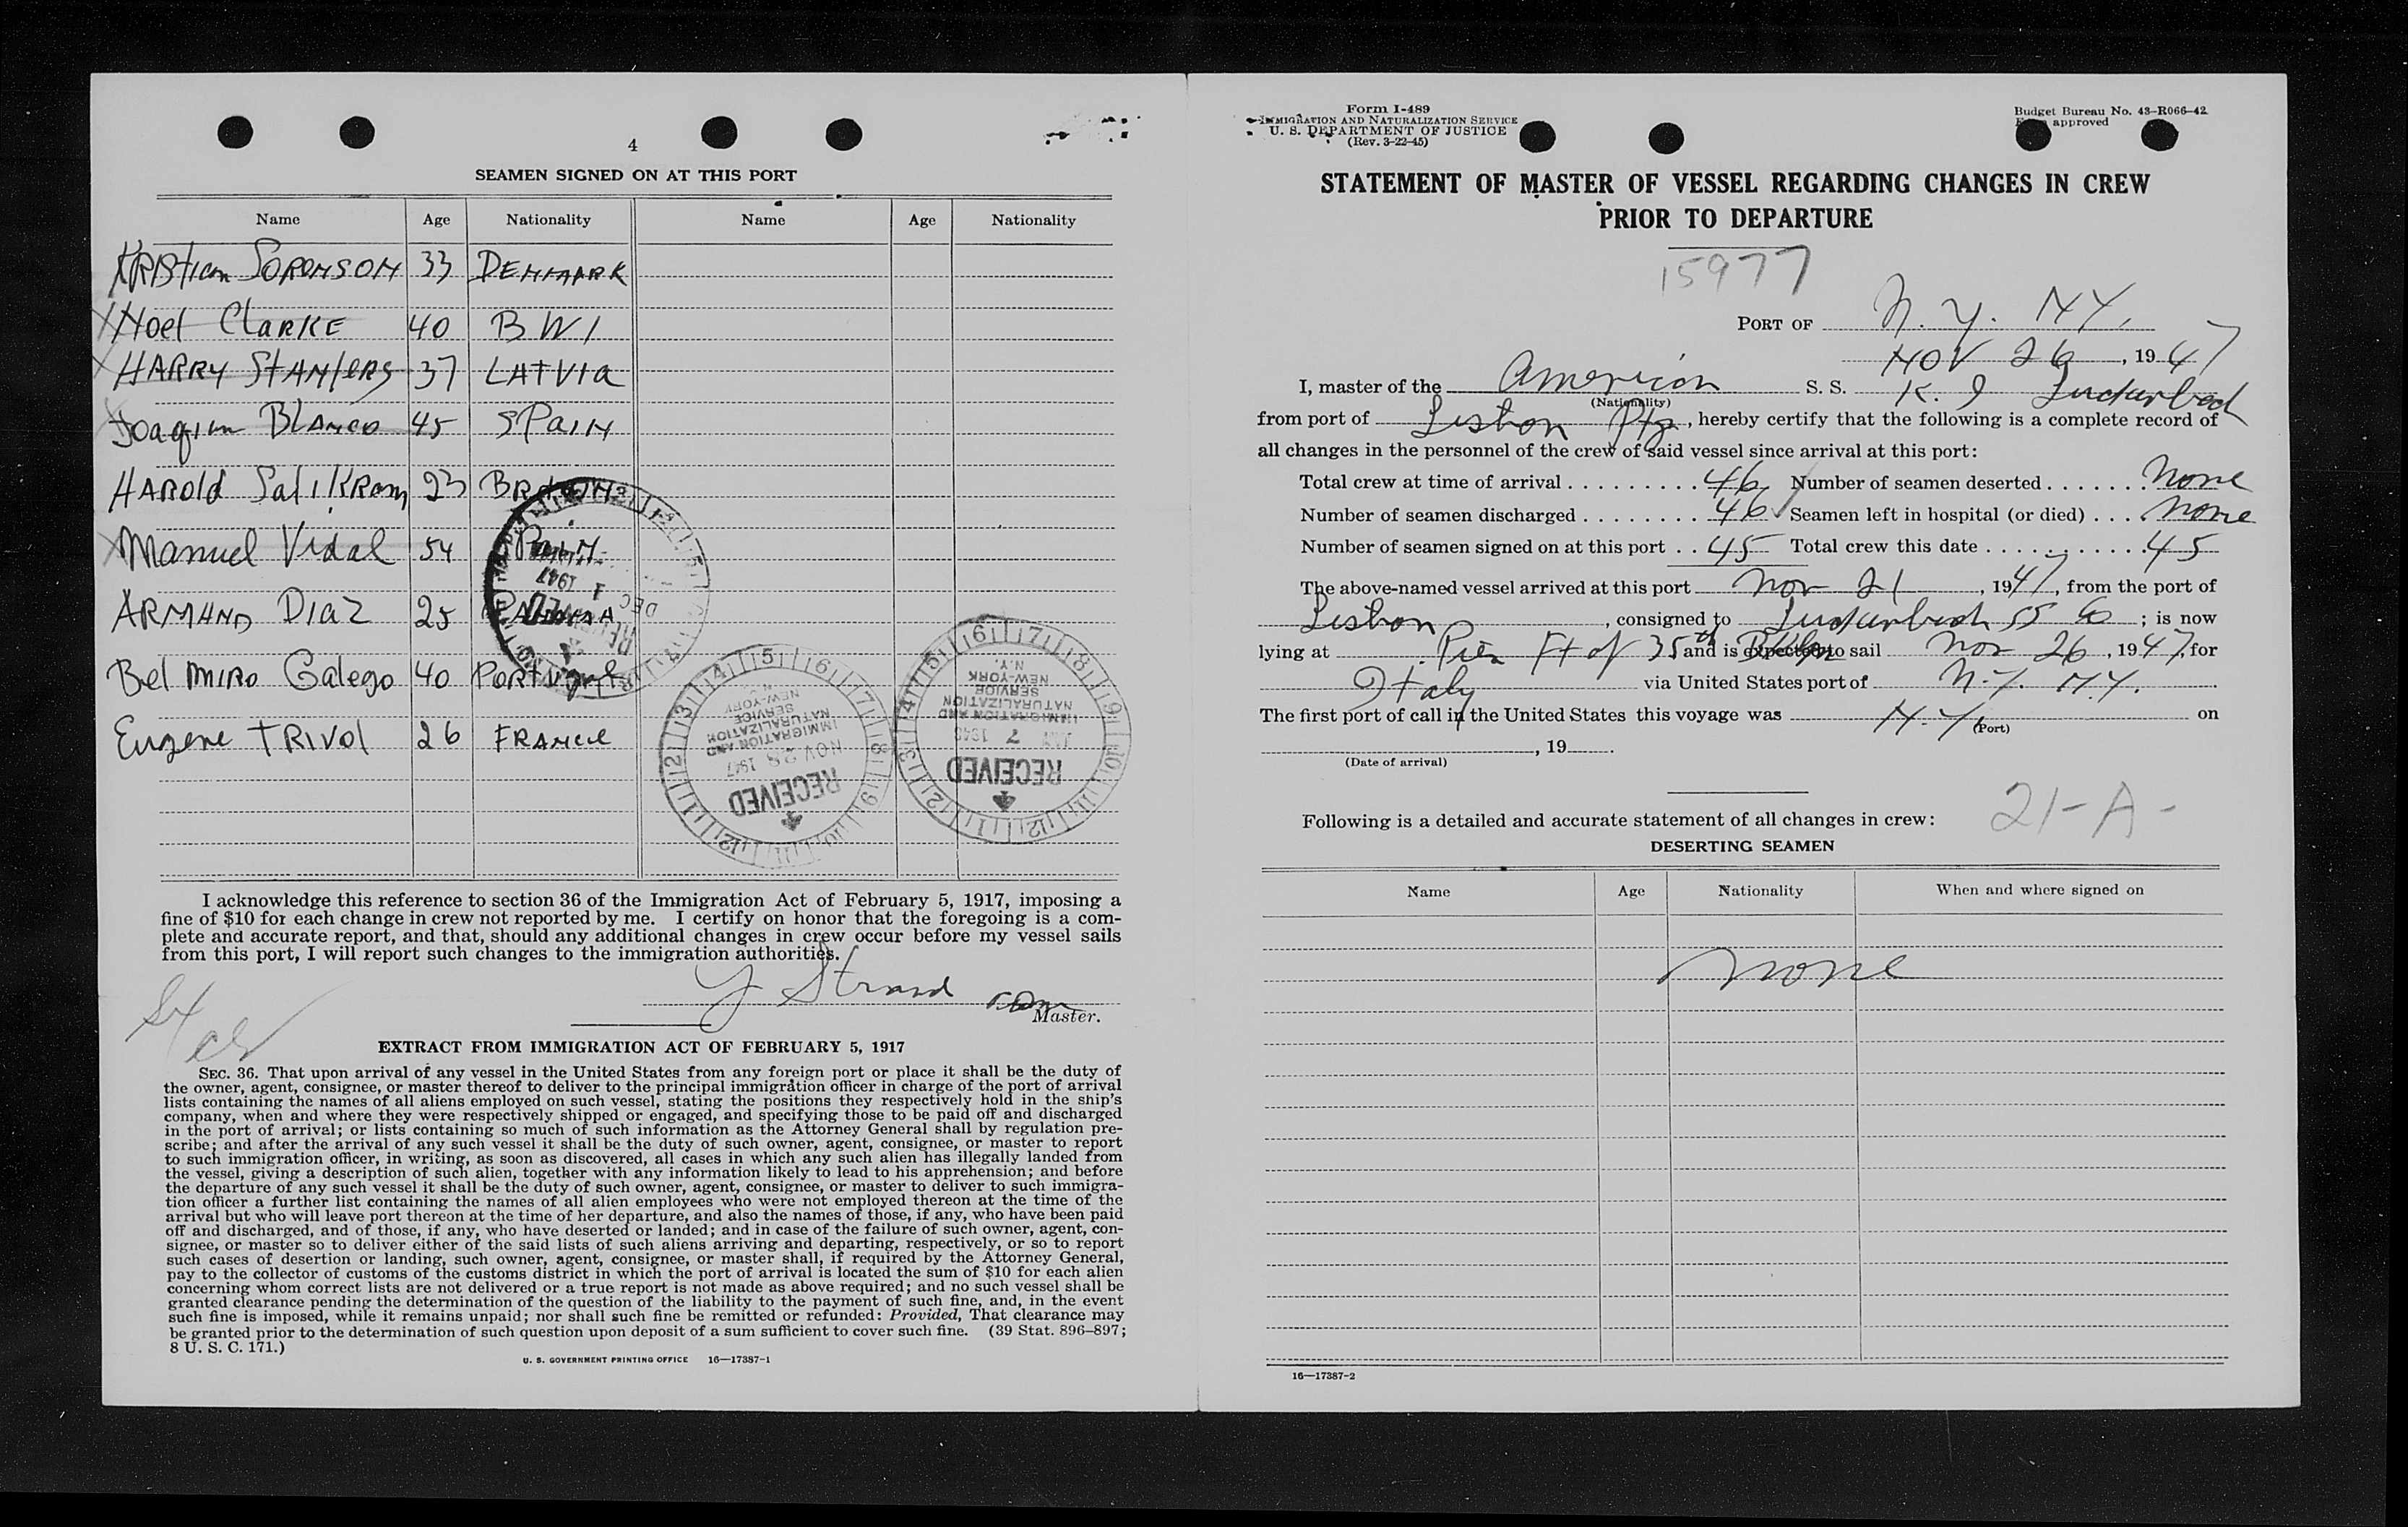 4
SEAMEN SIGNED ON AT THIS PORT
Name Age Nationality Name Age Nationality
KRIStian SORONSON 33 DENMARK
Noel CLARKE 40 BWI
HARRY StANleRS 37 LAtVIa
Joaquim BLANCO 45 SPaiN
HAROld SaliKRam 23
Manuel Vidal 54
ARMAND Diaz 25 PANAMA
Bel MIRO Galego 40 PORtugal
Eugene tRIVOl 26 FRANCE
RECEIVED
DEC 1 1947
RECEIVED
NOV 28 1947
IMMIGRATION AND
NATURALIZATION
SERVICE
NEW-YORK
N.Y.
RECEIVED
JAN 7 1948
IMMIGRATION AND
NATURALIZATION
SERVICE
NEW-YORK
N.Y.
I acknowledge this reference to section 36 of the Immigration Act of February 5, 1917, imposing a
fine of $10 for each change in crew not reported by me. I certify on honor that the foregoing is a com-
plete and accurate report, and that, should any additional changes in crew occur before my vessel sails
from this port, I will report such changes to the immigration authorities.
Y Strand
Master.
EXTRACT FROM IMMIGRATION ACT OF FEBRUARY 5, 1917
SEC. 36. That upon arrival of any vessel in the United States from any foreign port or place it shall be the duty of
the owner, agent, consignee, or master thereof to deliver to the principal immigration officer in charge of the port of arrival
lists containing the names of all aliens employed on such vessel, stating the positions they respectively hold in the ship's
company, when and where they were respectively shipped or engaged, and specifying those to be paid off and discharged
in the port of arrival; or lists containing so much of such information as the Attorney General shall by regulation pre-
scribe; and after the arrival of any such vessel it shall be the duty of such owner, agent, consignee, or master to report
to such immigration officer, in writing, as soon as discovered, all cases in which any such alien has illegally landed from
the vessel, giving a description of such alien, together with any information likely to lead to his apprehension; and before
the departure of any such vessel it shall be the duty of such owner, agent, consignee, or master to deliver to such immigra-
tion officer a further list containing the names of all alien employees who were not employed thereon at the time of the
arrival but who will leave port thereon at the time of her departure, and also the names of those, if any, who have been paid
off and discharged, and of those, if any, who have deserted or landed; and in case of the failure of such owner, agent, con-
signee, or master so to deliver either of the said lists of such aliens arriving and departing, respectively, or so to report
such cases of desertion or landing, such owner, agent, consignee, or master shall, if required by the Attorney General,
pay to the collector of customs of the customs district in which the port of arrival is located the sum of $10 for each alien
concerning whom correct lists are not delivered or a true report is not made as above required; and no such vessel shall be
granted clearance pending the determination of the question of the liability to the payment of such fine, and, in the event
such fine is imposed, while it remains unpaid; nor shall such fine be remitted or refunded: Provided, That clearance may
be granted prior to the determination of such question upon deposit of a sum sufficient to cover such fine. (39 Stat. 896–897;
8 U. S. C. 171.)
U. S. GOVERNMENT PRINTING OFFICE 16—17387-1
Form I-489
IMMIGRATION AND NATURALIZATION SERVICE
U. S. DEPARTMENT OF JUSTICE
(Rev. 3-22-45)
Budget Bureau No. 43–R066–42
Form approved
STATEMENT OF MASTER OF VESSEL REGARDING CHANGES IN CREW
PRIOR TO DEPARTURE
15977
PORT OF N. Y. NY.
NOV 26, 1947
I, master of the American S. S. K. I Luckenbach
(Nationality)
from port of Lisbon Ptg, hereby certify that the following is a complete record of
all changes in the personnel of the crew of said vessel since arrival at this port:
Total crew at time of arrival 46 Number of seamen deserted None
Number of seamen discharged 46 Seamen left in hospital (or died) None
Number of seamen signed on at this port 45 Total crew this date 45
The above-named vessel arrived at this port Nov 21, 1947, from the port of
Lisbon, consigned to Luckenbach SS Co; is now
lying at Pier Ft of 35th Bklyn and is expected to sail Nov 26, 1947, for
Italy via United States port of N.Y. N.Y.
The first port of call in the United States this voyage was N.Y on
(Port)
, 19 .
(Date of arrival)
21-A-
Following is a detailed and accurate statement of all changes in crew:
DESERTING SEAMEN
Name Age Nationality When and where signed on
None
16—17387-2